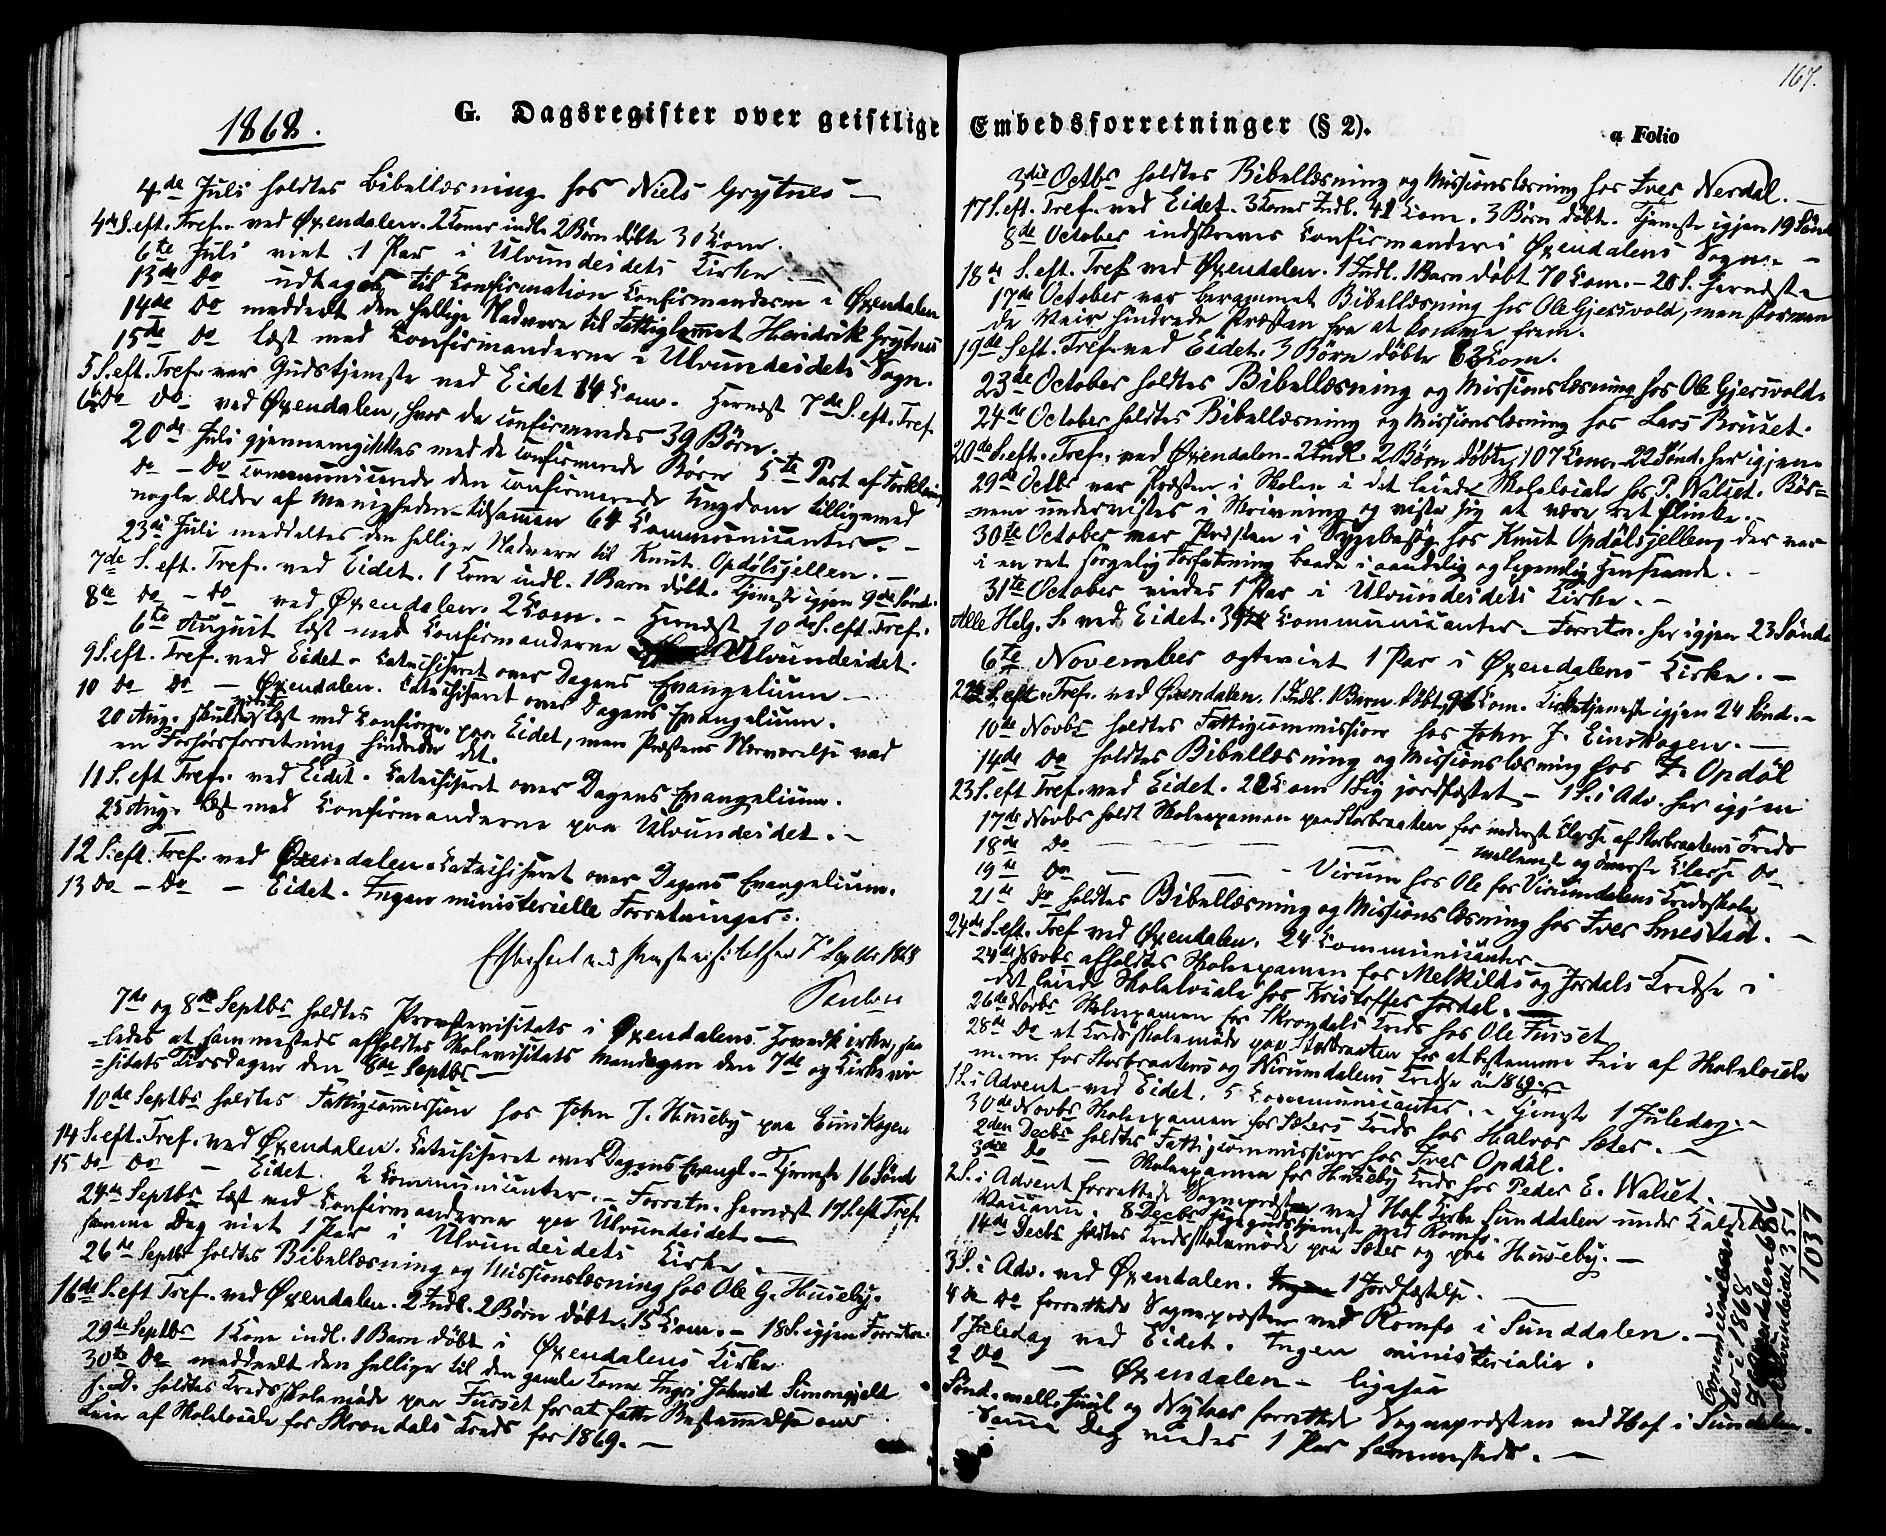 167.
G. Dagsregister over geistlige Embedsforretninger (§ 2).
a Folio
1868.
4de Juli holdtes Bibellæsning hos Niels Grytnes —
4de S. eft. Tref. ved Øxendalen. 2 Koner indl. 2 Børn døbte 30 Kom.
6te Juli viet 1 Par i Ulvundeidets Kirke.
13de Do udtages til Confirmation Confirmanderne i Øxendalen
14de Do meddeelt den hellige Nadvere til Fattiglemmet Hendrik Grytnes
15de Do læst med Confirmanderne i Ulvundeidets Sogn.
5 S. eft. Tref. var Gudstjeneste ved Eidet 14 Kom. Hernæst 7de S. eft. Tref.
6te Do Do ved Øxendalen, hvor da confirmeredes 39 Børn.
20de Juli gjennemgikkes med de confirmerede Børn 5te Part af Forklaring
do – Do communicerede den confirmerede Ungdom tilligemed
nogle ældre af Menigheden – tilsammen 64 Communicanter. –
23de Juli meddeltes den hellige Nadvere til Knut Opdølsjellen. –
7de S. eft. Tref. ved Eidet. 1 Kone indl. 1 Barn døbt. Tjeneste igjen 9de Sønd.
8de do – do ved Øxendalen. 2 Kom. – Hernæst 10de S. eft. Tref.
6te August læst med Confirmanderne Ulvundeidet.
9 S. eft. Tref. ved Eidet – Catechiseret over Dagens Evangelium –
10 Do Do – Øxendalen. Catechiseret over Dagens Evangelium.
20 Aug. skulde læst med Confirm. paa Eidet, men Præstens Nærværelse ved
en Forhørsforretning hindrede det.
11 S. eft. Tref. ved Eidet. Catechiseret over Dagens Evangelium.
25 Aug. læst med Confirmanderne paa Ulvundeidet. –
12 S. eft. Tref. ved Øxendalen. Catechiseret over Dagens Evangelium.
13 Do – Do – Eidet. Ingen ministerielle Forretninger.
7 Septbr 1868
7de og 8de Septbr holdtes Provstevisitats i Øxendalens Hovedkirke, saa-
ledes at sammesteds afholdtes Skolevisitats Mandagen den 7de og Kirkevi-
sitats Tirsdagen den 8de Septbr –
10de Septbr holdtes Fattigcommission hos John J. Huseby paa Einskogen
14 S. eft. Tref. ved Øxendalen. Catechiseret over Dagens Evangl. – Tjeneste 16 Sønd
15 Do Do – Eidet. 2 Communicanter. – Forretn. hernæst 17 S. eft. Tref.
24de Septbr læst med Confirmanderne paa Ulvundeidet –
samme Dag viet 1 Par i Ulvundeidets Kirke. –
26de Septbr holdtes Bibellæsning og Missionslæsning hos Ole G. Huseby.
16de S. eft. Tref. ved Øxendalen. 2 Indl. 2 Børn døbte. 15 Kom. – 18 S. igjen Forretn.
29de Septbr 1 Kone indl. 1 Barn døbt i Øxendalens Kirke
30te Do meddeelt den hellige til den gamle Kone Ingri Johnsd Simongjelt
s. D. holdtes Kredsskolemøde paa Fusset for at fatte Bestemmelse om
Leie af Skolelocale for Skrondals Kreds for 1869. –
3die Octbr holdtes Bibellæsning og Missionslæsning hos Iver Nerdal. –
17 S. eft. Tref. ved Eidet. 3 Koner Indl. 41 Kom. 3 Børn døbt. Tjeneste igjen 19 Sønd
8de October indskreves Confirmander i Øxendalens Sogn. –
18de S. eft. Tref ved Øxendalen. 1 Indl. 1 Barn døbt 70 Kom. – 20 S. hernæst
17de October var berammet Bibellæsning hos Ole Gjersvold, men stormen-
de Veir hindrede Præsten fra at komme frem.
19de S. eft. Tref. ved Eidet. 3 Børn døbte 62 Kom.
23de October holdtes Bibellæsning og Missionslæsning hos Ole Gjersvold.
24de October holdtes Bibellæsning og Missionslæsning hos Lars Bruset.
20de S. eft. Tref. ved Øxendalen – 2 Indl. 2 Børn døbte, 107 Kom. – 22 Sønd. her igjen
29de Octbr var Præsten i Skolen i det leiede Skolelocale hos P. Walset. Bør-
nene undervistes i Skrivning og viste sig at være ret flinke. –
30te October var Præsten i Sygebesøg hos Knut Opdølsjellen, der var
i en ret sørgelig Forfatning baade i aandelig og legemlig Henseende. –
31te October viedes 1 Par i Ulvundeidets Kirke. –
Alle Helg. S. ved Eidet. Communicanter – Forretn. her igjen 23 Sønd.
6te November ægteviet 1 Par i Øxendalens Kirke. –
22de S. eft. Tref. ved Øxendalen. 1 Indl. 1 Barn døbt, 96 Kom. Kirketjeneste igjen 24 Sønd. –
10de Novbr holdtes Fattigcommission hos John J. Einskogen. –
14de Do holdtes Bibellæsning og Missionslæsning hos I. Opdøl
23 S. eft Tref. ved Eidet. 22 Kom 1 Lig jordfæstet – 1 S. i Adv. her igjen
17de Novbr holdt Skoleexamen paa Storbraaten for nederste Classe af Storbraatens Kreds
18de Do – – – – mellemste og øverste Classe Do
19de Do – – – Virum hos Ole for Virumdalens Kredsskole
21de Do holdtes Bibellæsning og Missionslæsning hos Iver Smestad. –
24de S. eft. Tref ved Øxendalen. 24 Communicanter –
24de Novbr afholdtes Skoleexamen for Melkilds og Jordals Kredse i
det leiede Skolelocale hos Kristoffer Jordal. –
26de Novbr Skoleexamen for Skrondals Kreds hos Ole Fusset
28de Do et Kredsskolemøde paa Storbraaten for at bestemme Leie af Skolelocale
m.m. for Storbraatens og Virumdalens Kredse i 1869. –
1 S. i Advent – ved Eidet. 5 Communicanter. – Tjeneste 1 Juledag. –
30de Novbr Skoleexamen for Sæters Kreds hos Halvor Sæter. –
2den Decbr holdtes Fattigcommission hos Iver Opdøl.
3die Do – Skoleexamen for Huseby Kreds hos Peder E. Walset. –
2 S. i Advent forrettede Sognepræsten ved Hof Kirke Sunddalen under Kaldets
Vacance. 8 Decbr Gudstjeneste ved Romfo.
14de Decbr holdtes Kredsskolemøde paa Sæter og paa Huseby. –
3 S. i Adv. ved Øxendalen. Ingen 1 Jordfæstelse. –
4de Do forrettede Sognepræsten ved Romfo i Sunddalen. –
1 Juledag ved Eidet. Ingen ministerialia.
2 Do – Øxendalen – ligesaa
Sønd. mell. Juul og Nytaar forrettede Sognepræsten ved Hof i Sundalen.
Samme Dag viedes 1 Par sammesteds. –
Communican-
ter i 1868
I Øxendalen 686
Ulvundeidet 351
1037